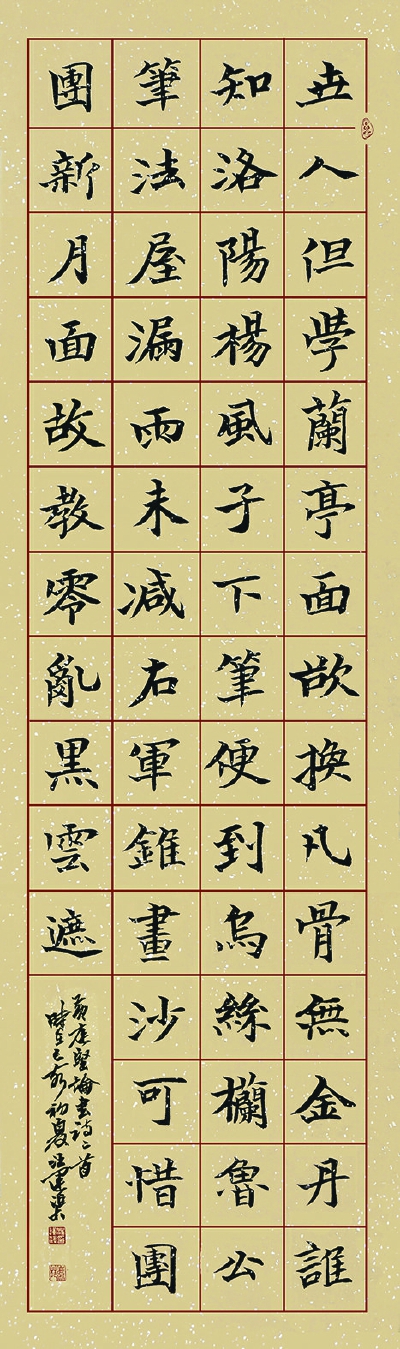 世人但學蘭亭面欲換凡骨無金丹誰
知洛陽楊風子下筆便到烏絲欄魯公
筆法屋漏雨未減右軍錐畫沙可惜團
團新月面故教零亂黑雲遮
黃庭堅論書詩二首
時在己亥初夏